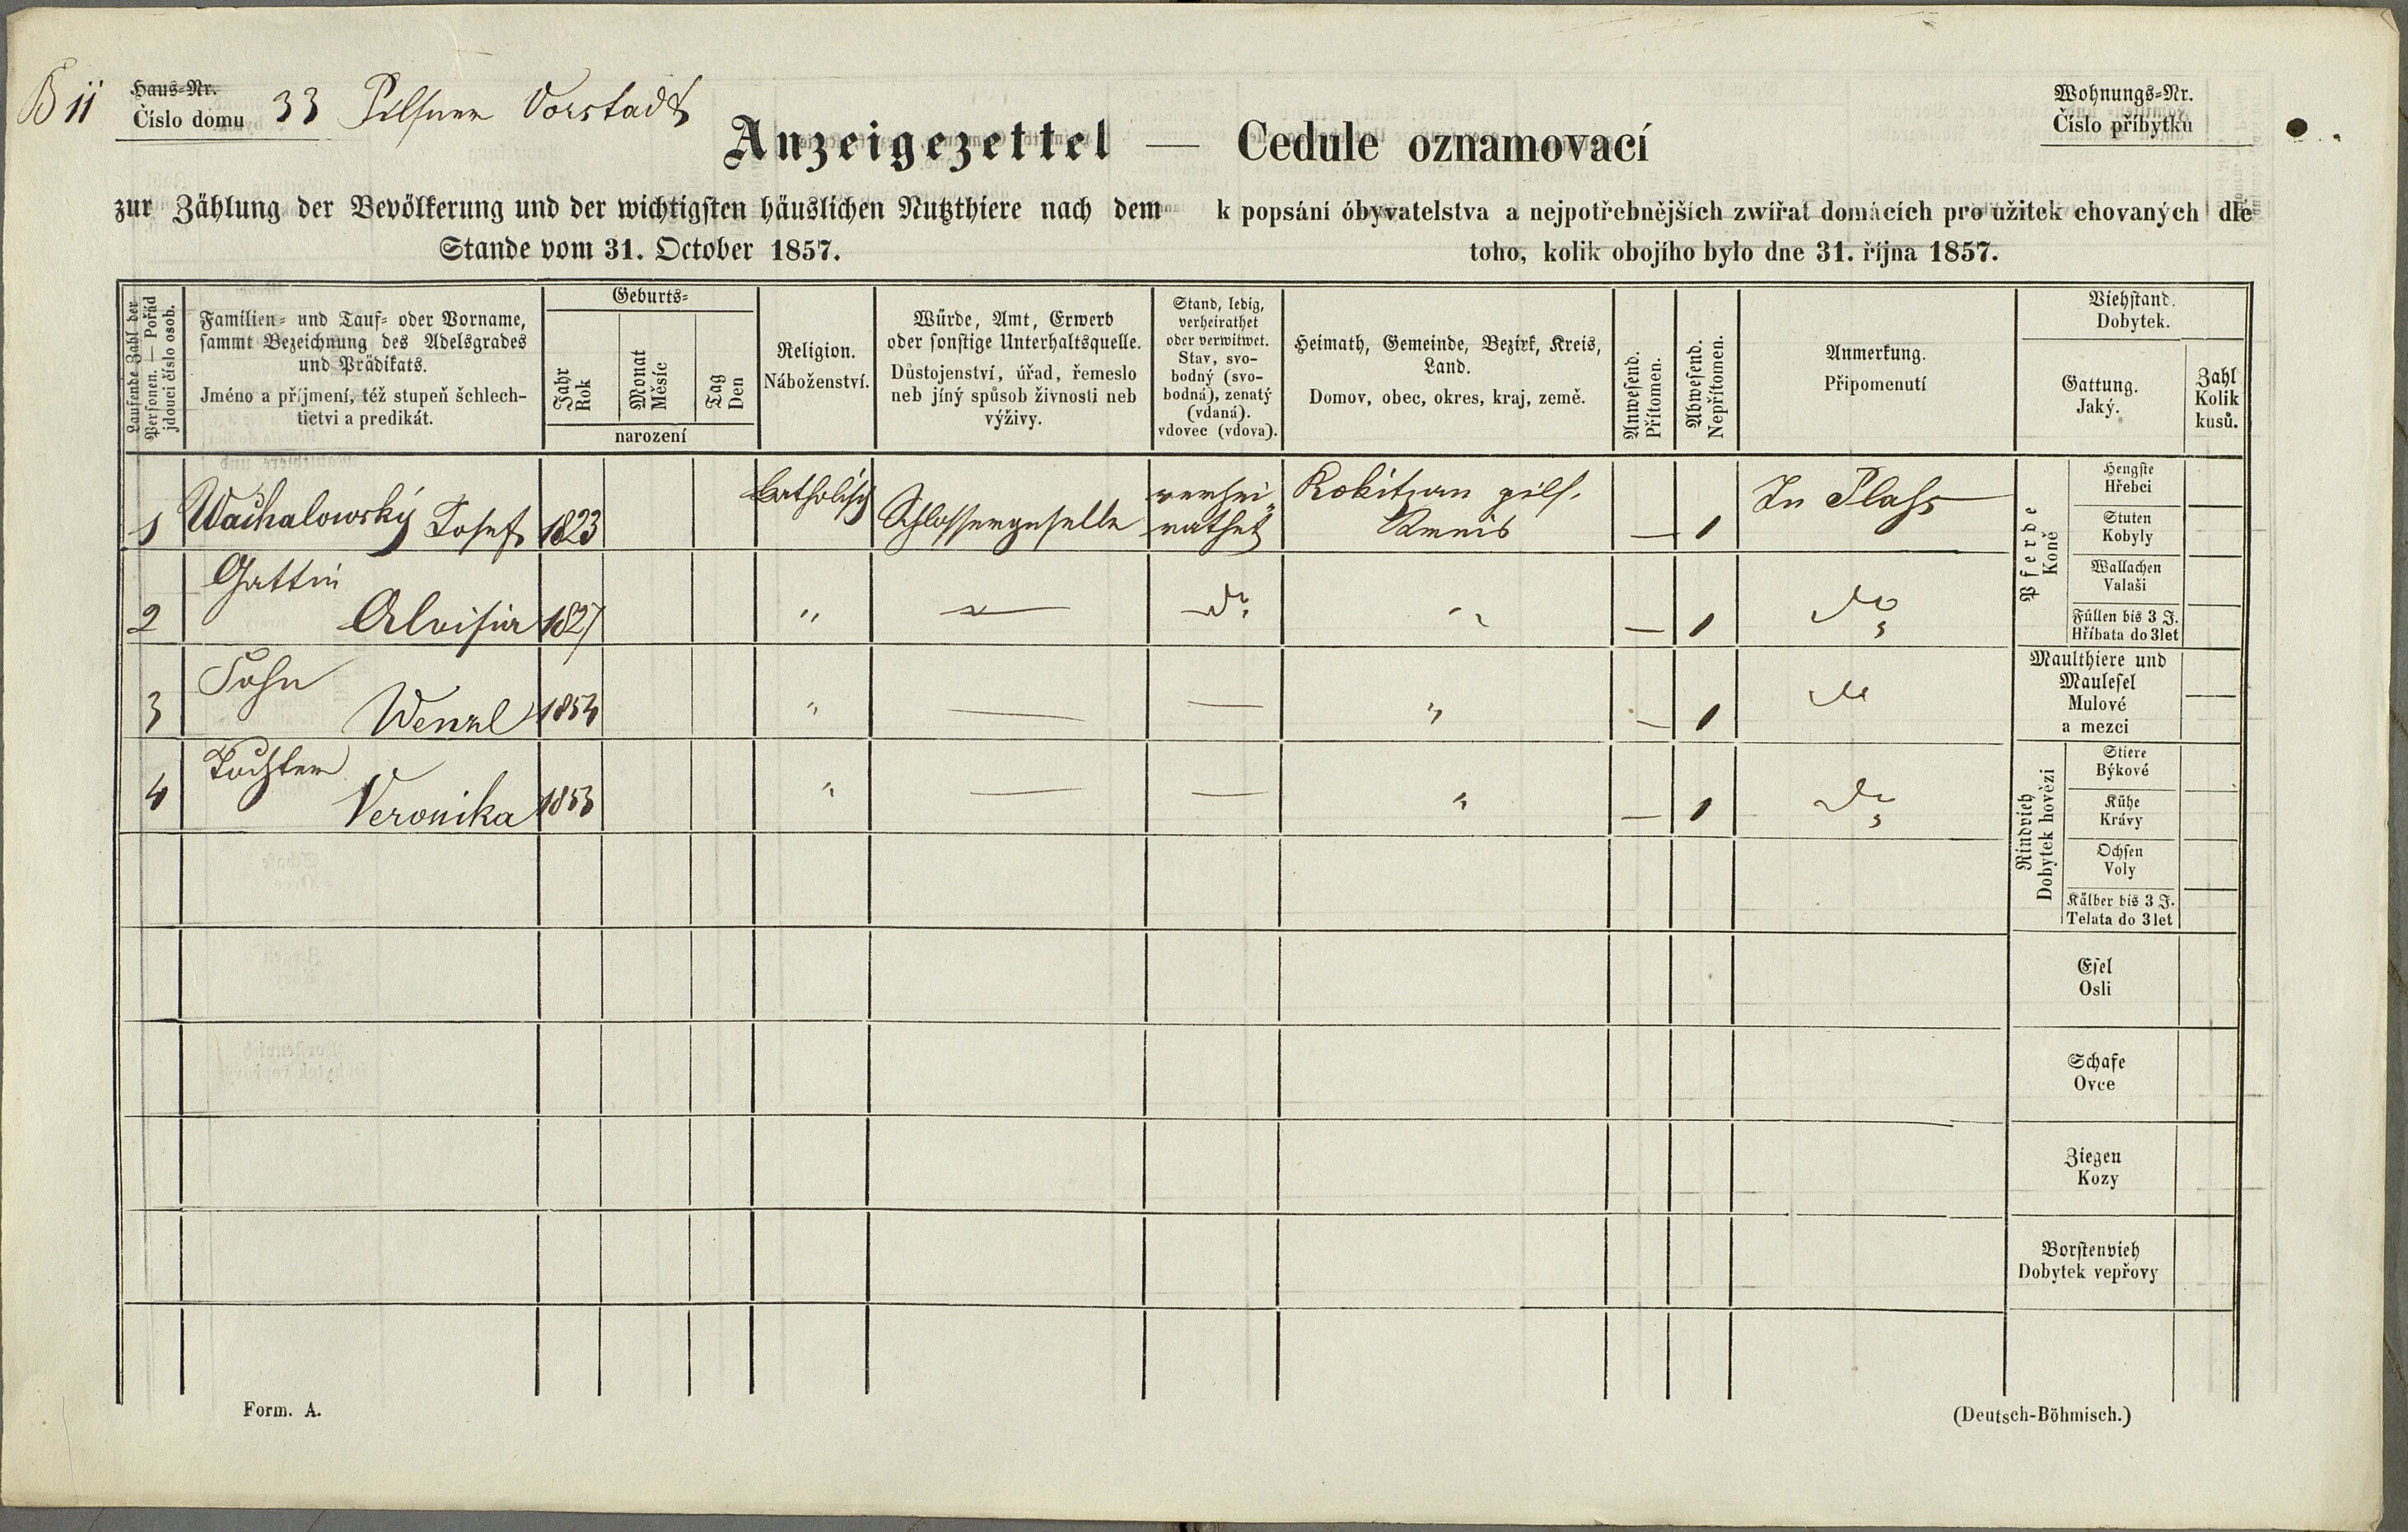 B II
Haus-Nr.
Číslo domu 33 Pilsner Vorstadt
Wohnungs-Nr.
Číslo příbytku
Anzeigezettel — Cedule oznamovací
zur Zählung der Bevölkerung und der wichtigsten häuslichen Nutzthiere nach dem
Stande vom 31. October 1857.
k popsání óbyvatelstva a nejpotřebnějších zwířat domácích pro užitek chovaných dle
toho, kolik obojího bylo dne 31. října 1857.
Laufende Zahl der
Personen. — Pořád
jdoucí číslo osob.
Familien- und Tauf- oder Vorname,
sammt Bezeichnung des Adelsgrades
und Prädikats.
Jméno a příjmení, též stupeň šchlech-
tictvi a predikát.
Geburts-
Jahr
Rok
Monat
Měsíc
Tag
Den
narození
Religion.
Náboženství.
Würde, Amt, Erwerb
oder sonstige Unterhaltsquelle.
Důstojenství, úřad, řemeslo
neb jíný spůsob živnosti neb
výživy.
Stand, ledig,
verheirathet
oder verwitwet.
Stav, svo-
bodný (svo-
bodná), zenatý
(vdaná).
vdovec (vdova).
Heimath, Gemeinde, Bezirk, Kreis,
Land.
Domov, obec, okres, kraj, země.
Anwesend.
Přítomen.
Abwesend.
Nepřítomen.
Anmerkung.
Připomenutí
Viehstand.
Dobytek.
Gattung.
Jaký.
Zahl
Kolik
kusů.
1 Wachalowský Josef 1823 katholisch Schlossergeselle verhei-
rathet Rokitzan pils.
Kreis — 1 In Plass
2 Gattin
Aloisia 1827 " — do " — 1 do
3 Sohn
Wenzl 1854 " — — " — 1 do
4 Tochter
Veronika 1853 " — — " — 1 do
Pferde
Koně
Hengste
Hřebci
Stuten
Kobyly
Wallachen
Valaši
Füllen bis 3 J.
Hříbata do 3 let
Maulthiere und
Maulesel
Mulové
a mezci
Rindvieh
Dobytek hovězi
Stiere
Býkové
Kühe
Krávy
Ochsen
Voly
Kälber bis 3 J.
Telata do 3 let
Esel
Osli
Schafe
Ovce
Ziegen
Kozy
Borstenvieh
Dobytek vepřovy
Form. A.
(Deutsch-Böhmisch.)